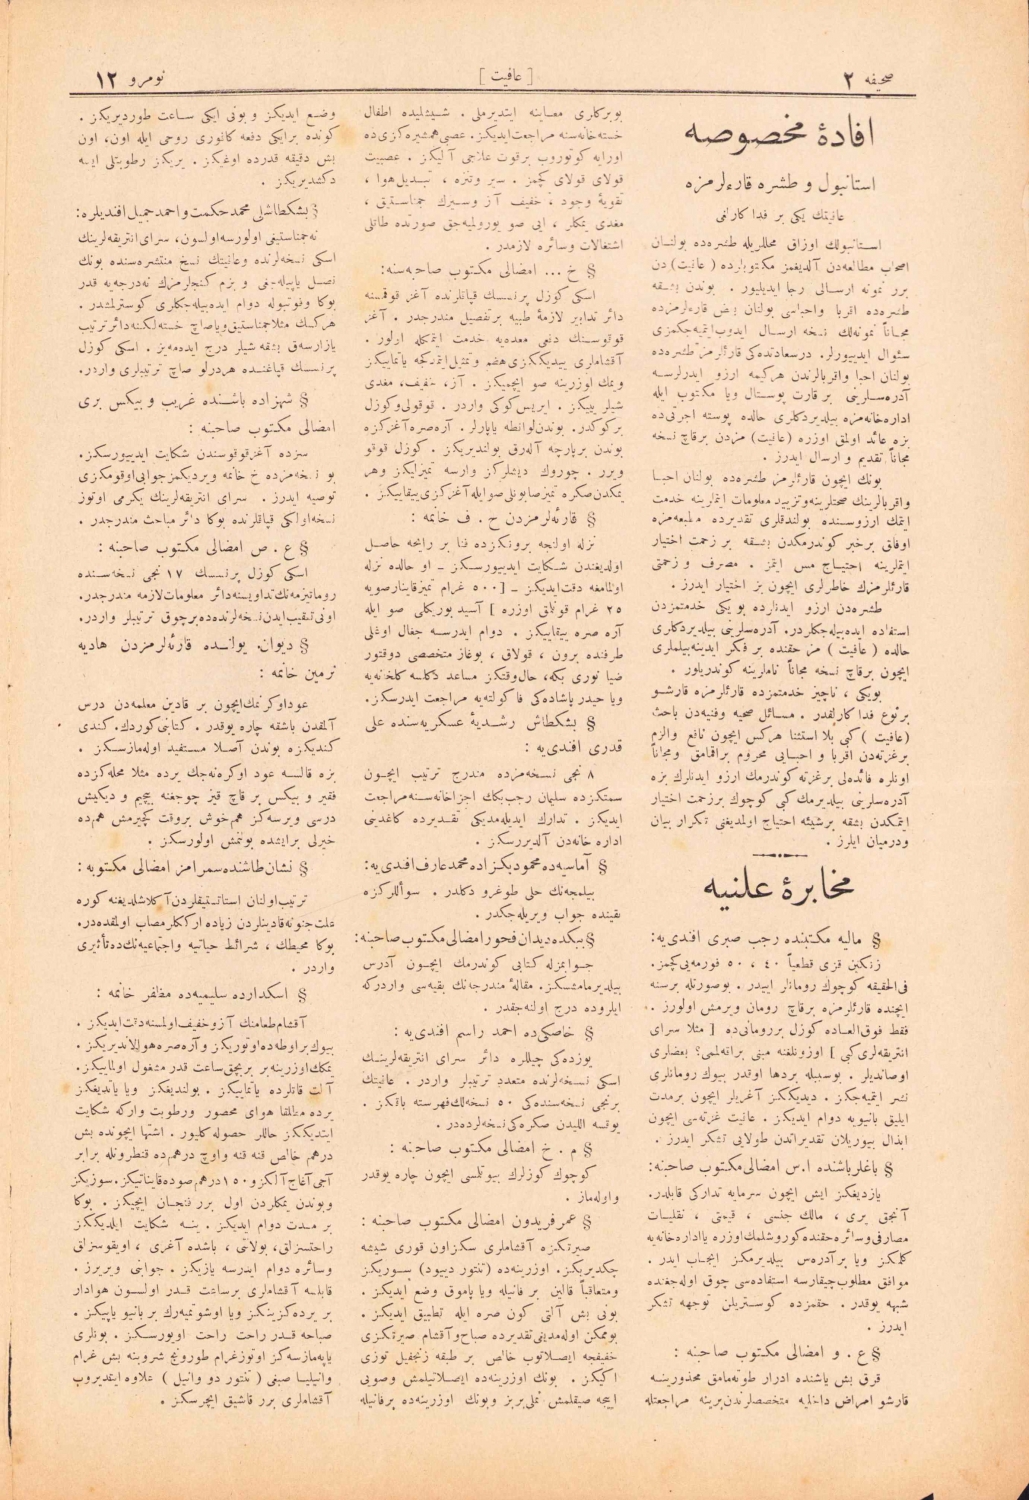 صحیفه ٢
[ عافیت ]
نومرو ١٢
افادهٔ مخصوصه
استانبول و طشره قارءلرمزه
عافیتك یكی بر فدا كارلغی
استانبولك اوزاق محللریله طشره‌ده بولنان
اصحاب مطالعه‌دن آلدیغمز مكتوبلرده ( عافیت ) دن
برر نمونه ارسالی رجا ایدیلیور . بوندن بشقه
طشره‌ده اقربا و احباسی بولنان بعض قارءلرمزده
مجاناً نمونه‌لك نسخه ارسال ایدوب ایتمیه‌جكمزی
سئوال ایدییورلر . درسعادتده‌كی قارئلرمز طشره‌ده
بولنان احبا واقربالرندن هركیمه ارزو ایدرلرسه
آدره‌سلرینی بر قارت پوستال ویا مكتوب ایله
اداره‌خانه‌مزه بیلدیردكلری حالده پوسته اجرتی‌ده
بزه عائد اولمق اوزره (عافیت) مزدن برقاچ نسخه
مجاناً تقدیم و ارسال ایدرز .
بونك ایچون قارئلرمز طشره‌ده بولنان احبا
واقربالرینك صحتلرینه وتزیید معلومات ایتملرینه خدمت
ایتمك ارزوسنده بولندقلری تقدیرده مطبعه‌مزه
اوفاق برخبر كوندرمكدن بشقه بر زحمت اختیار
ایتملرینه احتیاج مس ایتمز . مصرف و زحمتی
قارئلرمزك خاطرلری ایچون بز اختیار ایدرز .
طشره‌دن ارزو ایدنلرده بو یكی خدمتمزدن
استفاده ایده‌بیله‌جكلردر. آدره‌سلرینی بیلدیردكلری
حالده ( عافیت ) مز حقنده بر فكر ایدینه‌بیلملری
ایچون برقاچ نسخه مجاناً ناملرینه كوندریلور .
بویكی ، ناچیز خدمتمزده قارئلرمزه قارشو
برنوع فدا كارلقدر . مسائل صحیه وفنیه‌دن باحث
(عافیت ) كبی بلا استثنا هركس ایچون نافع والزم
برغزته‌دن اقربا و احبابی محروم براقمامق ومجاناً
اونلره فائده‌لی برغزته كوندرمك ارزو ایدنلرك بزه
آدره‌سلرینی بیلدیرمك كبی كوچوك برزحمت اختیار
ایتمكدن بشقه برشیئه احتیاج اولمدیغنی تكرار بیان
ودرمیان ایلرز .
مخابرهٔ علنیه
§ مالیه مكتبنده رجب صبری افندی‌یه:
زنكین قزی قطعیاً ٤٠ ، ٥٠ فورمه‌یی كچمز.
فی‌الحقیقه كوچوك رومانلر اییدر . بوصورتله برسنه
ایچنده قارئلرمزه برقاچ رومان ویرمش اولورز .
فقط فوق‌العاده كوزل بررومانی‌ده [ مثلا سرای
انتریقه‌لری كبی ] اوزونلغنه مبنی براقه‌لم‌می؟ بعضلری
اوصاندیلر . بوسببله بردها اوقدر بیوك رومانلری
نشر ایتمیه‌جكز . دیدیككز آغریلر ایچون برمدت
ایلیق بانیویه دوام ایدیكز . عافیت غزته‌سی ایچون
ابذال بیوریلان تقدیراتدن طولایی تشكر ایدرز .
§ باغلرباشنده ا.س امضالی مكتوب صاحبنه:
یازدیغكز ایش ایچون سرمایه تداركی قابلدر.
آنجق بری ، مالك جنسی ، قیمتی ، نقلیات
مصارفی وسائره حقنده كوروشلمك اوزره یا اداره‌خانه‌یه
كلمكز ویا برآدره‌س بیلدیرمكز ایجاب ایدر .
موافق مطلوب چیقارسه استفاده‌سی چوق اوله‌جغنده
شبهه یوقدر . حقمزده كوستریلن توجهه تشكر
ایدرز .
§ ع . و امضالی مكتوب صاحبنه :
قرق بش یاشنده ادرار طوته‌مامق محذورینه
قارشو امراض داخلیه متخصصلرندن برینه مراجعتله
بوبركلری معاینه ایتدیرملی . شیشلیده اطفال
خسته‌خانه‌سنه مراجعت ایدیكز. عصبی همشیره‌كزی‌ده
اورایه كوتوروب برقوت علاجی آلیكز . عصبیت
قولای قولای كچمز . سیر وتنزه ، تبدیل‌هوا ،
تقویهٔ وجود ، خفیف آز وسیرك جمناستیق ،
مغدی یمكلر ، ایی صو بورولمیه‌جق صورتده طاتلی
اشتغالات وسائره لازمدر .
§ خ ... امضالی مكتوب صاحبه‌سنه:
اسكی كوزل پرنسسك قیاتلرنده آغز قوقمسنه
دائر تدابیر لازمهٔ طبیه برتفصیل مندرجدر . آغز
قوقوسنك دفعی معده‌یه خدمت ایتمكله اولور .
آقشاملری ییدیككزی هضم وتمثیل ایتمدكجه یاتمایكز
ویمك اوزرینه صو ایچمیكز . آز، خفیف، مغدی
شیلر ییكز . ایریس كوكی واردر . قوقولی وكوزل
بركوكدر. بوندن لوانطه یاپارلر. آره‌صره آغزكزه
بوندن برپارچه آله‌رق بولندیریكز . كوزل قوقو
ویرر . چوروك دیشلركز وارسه تمیزلیكز وهر
یمكدن صكره تمیز صابونلی صو ایله آغزكزی ییقاییكز.
§ قارئه‌لرمزدن ح . ف خانمه :
نزله اولنجه برونكزده فنا بر رایحه حاصل
اولدیغندن شكایت ایدییورسكز . او حالده نزله
اولمامغه دقت ایدیكز . [ ٥٠٠ غرام تمیز قاینار صویه
٢٥ غرام قونلق اوزره ] آسید بوریكلی صو ایله
آره صره ییقاییكز . دوام ایدرسه جغال اوغلی
طرفنده برون ، قولاق ، بوغاز متخصصی دوقتور
ضیا نوری بكه، حال وقتكز مساعد دكلسه كلخانه‌یه
ویا حیدر پاشاده‌كی فاكولته‌یه مراجعت ایدرسكز.
§ بشكطاش رشدیهٔ عسكریه‌سنده علی
قدری افندی‌یه :
٨ نجی نسخه‌مزده مندرج ترتیب ایچون
سمتكزده سلیمان رجب‌بكك اجزاخانه‌سنه مراجعت
ایدیكز . تدارك ایدیله‌مدیكی تقدیرده كاغدینی
اداره خانه‌دن آلدیررسكز .
§ آماسیه‌ده محمودبكزاده محمد عارف افندی‌یه:
بیلمجه‌نك حلی طوغرو دكلدر . سوأللركزه
یقینده جواب ویریله‌جكدر.
§ ببكده دیدان فحور امضالی مكتوب صاحبنه:
جوابمزله كتابی كوندرمك ایچون آدرس
بیلدیرمامشسكز. مقالهٔ مندرجه‌نك بقیه‌سی واردركه
ایلروده درج اولنه‌جقدر.
§ خاصكی‌ده احمد راسم افندی‌یه :
یوزده‌كی چیللره دائر سرای انتریقه‌لرینك
اسكی نسخه‌لرنده متعدد ترتیبلر واردر . عافیتك
برنجی نسخه‌سنده‌كی ٥٠ نسخه‌لك فهرسته باقكز .
یوقسه اللیدن صكره‌كی نسخه‌لرده‌در.
§ م . خ امضالی مكتوب صاحبنه :
كوچوك كوزلرك بیوتلمسی ایچون چاره یوقدر
واوله‌ماز .
§ عمرفریدون امضالی مكتوب صاحبنه :
صیرتكزه آقشاملری سكزاون قوری شیشه
چكدیریكز. اوزرینه‌ده (تنتور دیبود) سوریكز
ومتعاقباً قالین بر فانیله ویا پاموق وضع ایدیكز .
بونی بش آلتی كون صره ایله تطبیق ایدیكز .
بوممكن اوله‌مدیغی تقدیرده صباح وآقشام صیرتكزی
خفیفجه ایصلاتوب خالص بر طبقه زنجفیل توزی
اكیكز . بونك اوزرینه‌ده ایصلاتیلمش وصویی
اییجه صیقلمش تلی بربز وبونك اوزرینه‌ده برفانیله
وضع ایدیكز و بونی ایكی ساعت طوردیریكز .
كونده برایكی دفعه كافوری روحی ایله اون، اون
بش دقیقه قدرده اوغیكز . یریكز رطوبتلی ایسه
دكشدیریكز .
§ بشكطاشلی محمد حكمت واحمد جمیل افندیلره:
نه‌جمناستیغی اولورسه اولسون، سرای انتریقه‌لرینك
اسكی نسخه‌لرنده وعافیتك نسخ منتشره‌سنده بونك
نصل یاپیله‌جغی و بزم كنجلرمزك نه‌درجه‌یه قدر
بوكا وفوتبوله دوام ایده‌بیله‌جكلری كوسترلمشدر .
هركسك مثلا جمناستیق ویا صاچ خسته‌لكنه دائر ترتیب
یازارسه‌ق بشقه شیلر درج ایده‌میز . اسكی كوزل
پرنسسك قیاغنده هردرلو صاچ ترتیبلری واردر.
§ شهزاده باشنده غریب و بیكس بری
امضالی مكتوب صاحبنه :
سزده آغزقوقوسندن شكایت ایدییورسكز.
بو نسخه‌مزده خ خانمه ویردیكمز جوابی اوقومكزی
توصیه ایدرز . سرای انتریقه‌لرینك یكرمی اوتوز
نسخه‌اولكی قیاتلرنده بوكا دائر مباحث مندرجدر .
§ ع . ص امضالی مكتوب صاحبنه :
اسكی كوزل پرنسسك ١٧ نجی نسخه‌سنده
روماتیزمه‌نك تداویسنه دائر معلومات لازمه مندرجدر.
اونی تعقیب ایدن نسخه‌لرنده‌ده برچوق ترتیبلر واردر.
§ دیوان یولنده قارئه‌لرمزدن هادیه
نرمین خانمه :
عود اوكرنمك ایچون بر قادین معلمه‌دن درس
آلمقدن باشقه چاره یوقدر . كتابنی كوردك. كندی
كندیكزه بوندن آصلا مستفید اوله‌مازسكز .
بزه قالسه عود اوكره‌نه‌جك یرده مثلا محله‌كزده
فقیر و بیكس بر قاچ قیز چوجغنه بیچیم و دیكیش
درسی ویرسه‌كز هم‌خوش بروقت كچیرمش هم‌ده
خیرلی برایشده بولنمش اولورسكز .
§ نشان طاشنده سمرامز امضالی مكتوبه :
ترتیب اولنان استاتستیقلردن آكلاشلدیغنه كوره
علت جنونه قادینلردن زیاده ارككلر مصاب اولمقده‌در.
بوكا محیطك ، شرائط حیاتیه واجتماعیه‌نك‌ده تأثیری
واردر .
§ اسكدارده سلیمیه‌ده مظفر خانمه :
آقشام طعامنك آز وخفیف اولمسنه دقت ایدیكز .
بیوك بر اوطه‌ده اوتوریكز وآره‌صره هوالاندیریكز .
یمك اوزرینه بر بربچق ساعت قدر مشغول اولماییكز.
آلت قاتلرده یاتماییكز . بولندیغكز ویا یاتدیغكز
یرده مطلقا هوای محصور ورطوبت واركه شكایت
ایتدیككز حاللر حصوله كلیور . اشتها ایچونده بش
درهم خالص قنه قنه واوچ درهم‌ده قنطرونله برابر
آجی آغاج آلكزو ١٥٠ درهم صوده قایناتیكز. سوزیكز
وبوندن یمكلردن اول برر فنجان ایچیكز . بوكا
بر مدت دوام ایدیكز . ینه شكایت ایلدیككز
راحتسزلق، بولانتی ، باشده آغری ، اویقوسزلق
وسائره دوام ایدرسه یازیكز . جوابنی ویریرز .
قابلسه آقشاملری برساعت قدر اولسون هوادار
بر یرده كزینكز ویا اوشوتمیه‌رك بر بانیو یاپیكز .
صباحه قدر راحت راحت اویورسكز . بونلری
یاپه‌مازسه‌كز اوتوزغرام طورونج شروبنه بش غرام
وانیلیا صبغی ( تنتور دو وانیل ) علاوه ایتدیروب
آقشاملری برر قاشیق ایچرسكز .